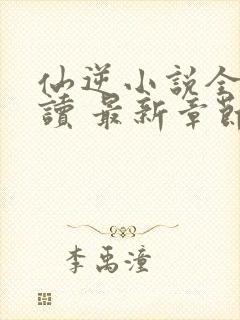 仙逆小說全
讀 最新章節
李禹潼